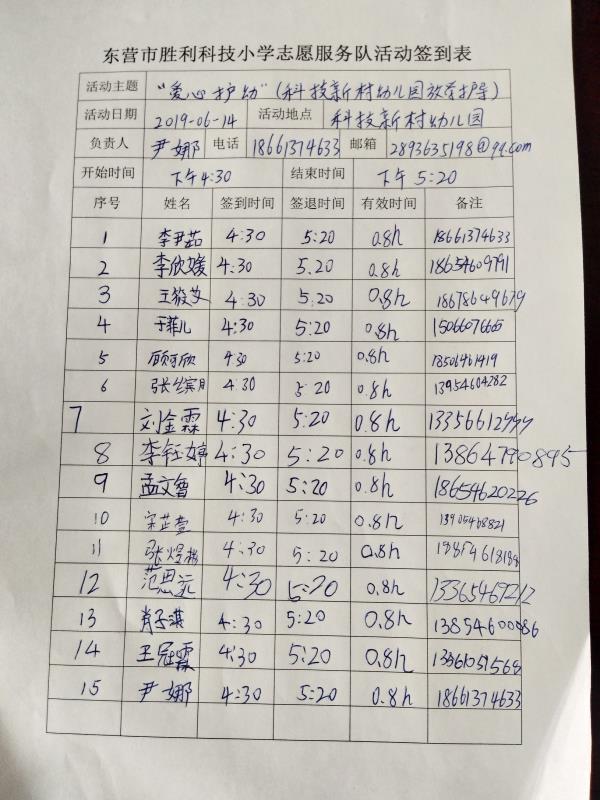 东营市胜利科技小学志愿服务队活动签到表
活动主题 “爱心护幼”(科技新村幼儿园放学护导)
活动日期 2019-06-14 活动地点 科技新村幼儿园
负责人 尹娜 电话 18661374633 邮箱 2893635198@qq.com
开始时间 下午4:30 结束时间 下午5:20
序号 姓名 签到时间 签退时间 有效时间 备注
1 李尹茹 4:30 5:20 0.8h 18661374633
2 李欣媛 4:30 5.20 0.8h 18654609791
3 王筱艾 4:30 5:20 0.8h 18678649679
4 于菲儿 4:30 5:20 0.8h 15066076665
5 顾可欣 4:30 5:20 0.8h 18506461419
6 4:30 5:20 0.8h 13954604282
7 刘金霖 4:30 5:20 0.8h
8 李钰婷 4:30 5:20 0.8h 13864790895
9 孟文睿 4:30 5:20 0.8h 18654620226
10 宋芷萱 4:30 5:20 0.8h 13905468821
11 4:30 5:20 0.8h
12 范思元 4:30 5:20 0.8h 13365467212
13 肖子淇 4:30 5:20 0.8h 13854600886
14 王冠霖 4:30 5:20 0.8h 13361051568
15 尹娜 4:30 5:20 0.8h 18661374633